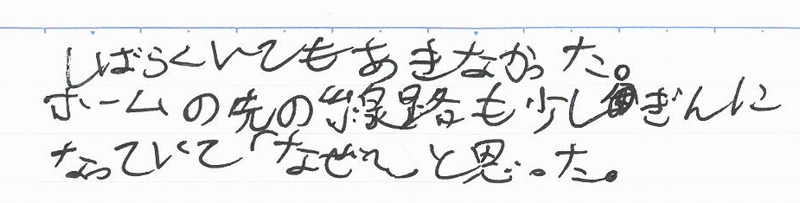 しばらくいてもあきなかった。
ホームの先の線路も少しぎんに
なっていて「なぜ」と思った。